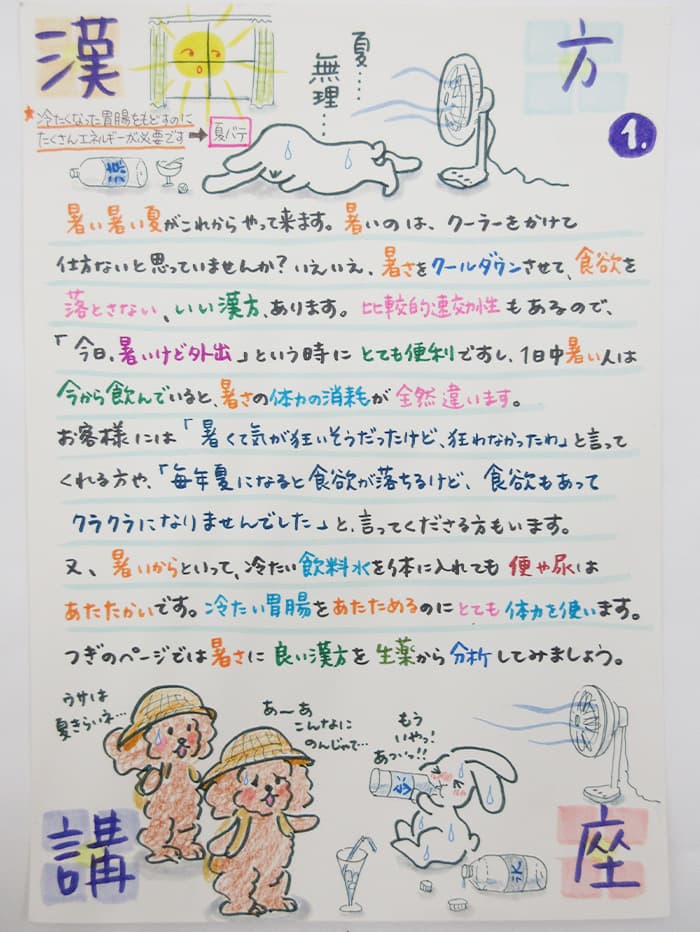 漢方
1.
夏…
無理…
★冷たくなった胃腸をもどすのに
たくさんエネルギーが必要です ➡ 夏バテ
暑い暑い夏がこれからやって来ます。暑いのは、クーラーをかけて
仕方ないと思っていませんか?いえいえ、暑さをクールダウンさせて、食欲を
落とさない、いい漢方、あります。比較的速効性もあるので、
「今日、暑いけど外出」という時にとても便利ですし、1日中暑い人は
今から飲んでいると、暑さの体力の消耗が全然違います。
お客様には「暑くて気が狂いそうだったけど、狂わなかったわ」と言って
くれる方や、「毎年夏になると食欲が落ちるけど、食欲もあって
クラクラになりませんでした」と、言ってくださる方もいます。
又、暑いからといって、冷たい飲料水を体に入れても便や尿は
あたたかいです。冷たい胃腸をあたためるのにとても体力を使います。
つぎのページでは暑さに良い漢方を生薬から分析してみましょう。
ウサは
夏きらいネ…
あ〜あ
こんなに
のんじゃて…
もう
いやっ!
あつぃっ!!
水
講座